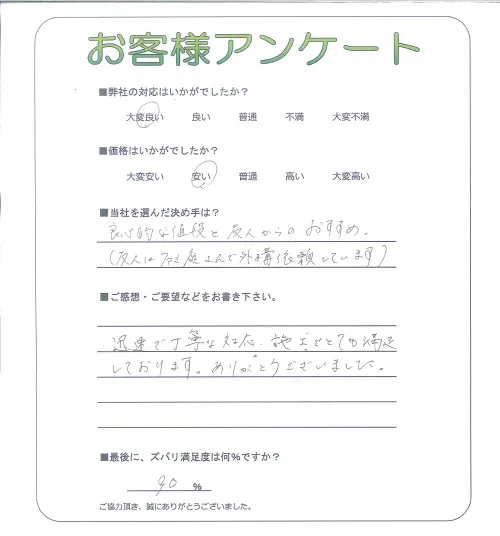 お客様アンケート
■弊社の対応はいかがでしたか？
大変良い　良い　普通　不満　大変不満
■価格はいかがでしたか？
大変安い　安い　普通　高い　大変高い
■当社を選んだ決め手は？
良心的な値段と友人からの おすすめ。
(友人は 庭 さんで外構依頼しています)
■ご感想・ご要望などをお書き下さい。
迅速で丁寧な対応、施工でとても満足
しております。ありがとうございました。
■最後に、ズバリ満足度は何%ですか？
90 %
ご協力頂き、誠にありがとうございました。